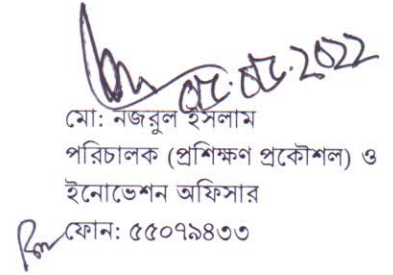 মো: নজরুল ইসলাম
পরিচালক (প্রশিক্ষণ প্রকৌশল) ও
ইনোভেশন অফিসার
ফোন: ৫৫০৭৯৪৩৩